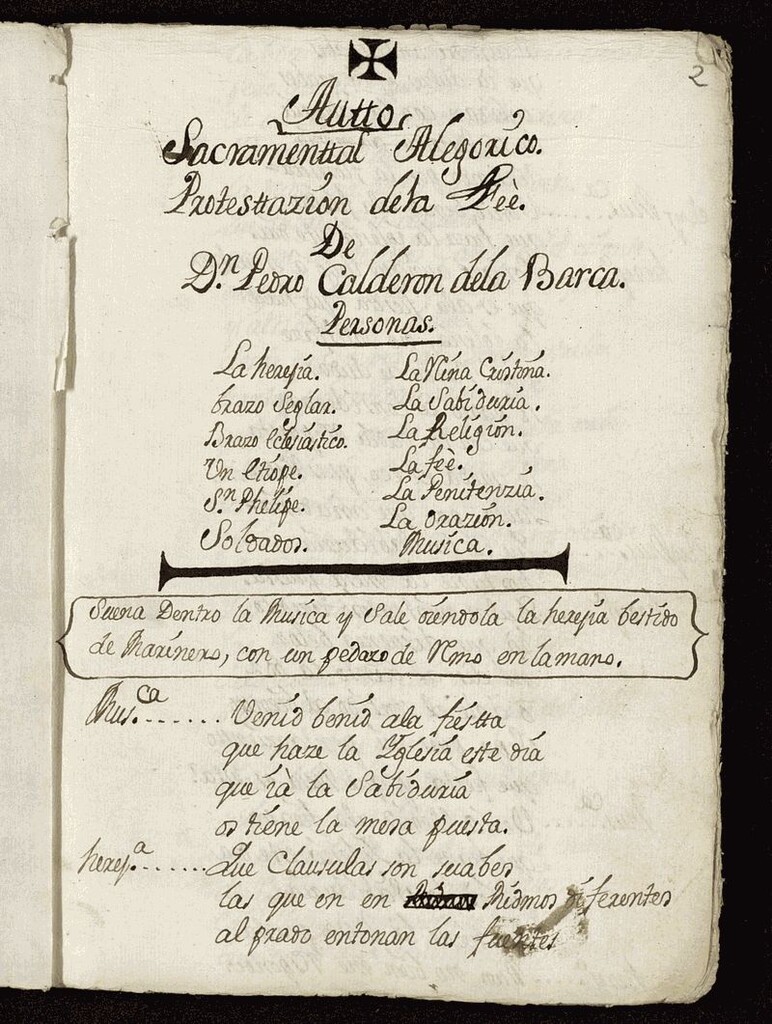 2
Autto
Sacramenttal Alegorico.
Protesttazion dela Feè.
De
D.n Pedro Calderon dela Barca.
Personas.
La herejia. La Nina Cristina.
brazo Seglar. La Sabiduria.
Brazo eclesiastico. La Religion.
Un Etiope. La feè.
S.n Phelipe. La Penitenzia.
Soldados. La Orazion.
Musica.
Suena Dentro la Musica y Sale oiendola la herejia bestido
de Marinero, con un pedazo de Rmo en la mano.
Mus.ca....... Venid benid ala fiestta
que haze la Yglesia este dia
que ià la Sabiduria
os tiene la mesa puesta.
herej.a...... Que Clausulas son suabes
las que en en Ridmos diferentes
al prado entonan las fuentes